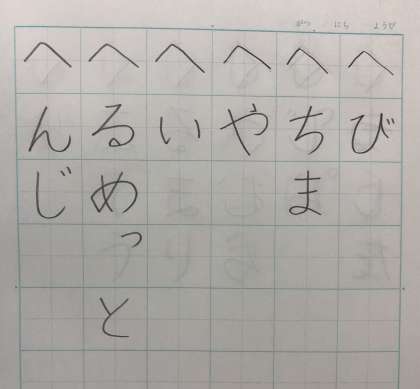 がつ にち ようび
へび
へちま
へや
へい
へるめっと
へんじ